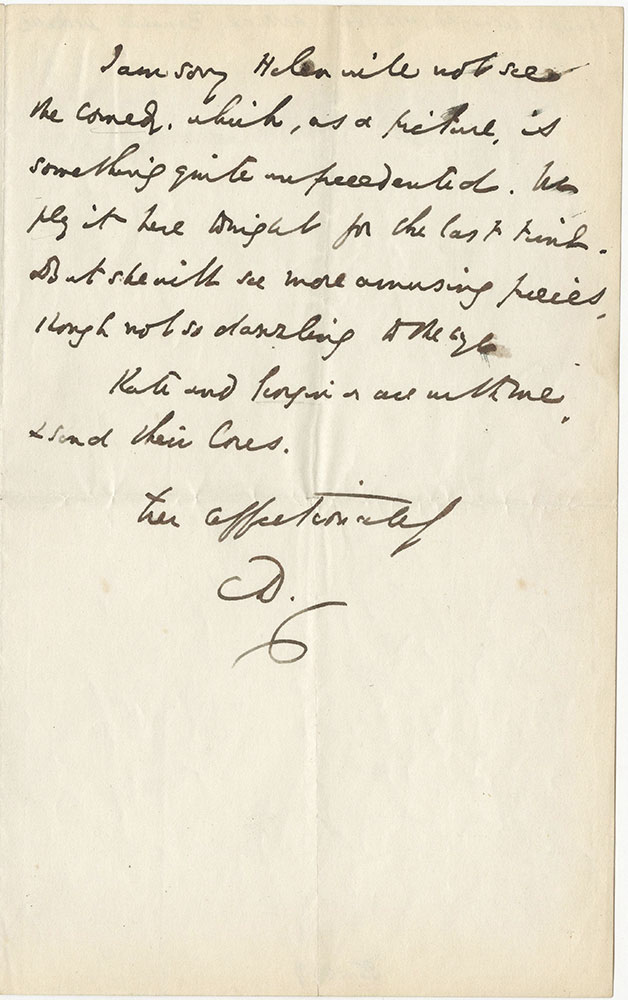 I am sorry Helen will not see
the comedy, which, as a picture, is
something quite unprecedented. We
play it here tonight for the last time.
But she will see more amusing pieces,
though not so dazzling to the eye
Kate and Georgina are with me,
& send their loves.
Ever affectionately
CD.